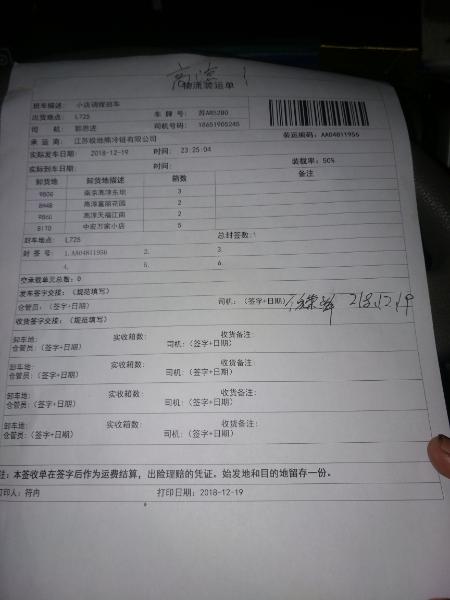 高淳 1
物流装运单
班车描述: 小店调拨班车
出货地点: L725 车 牌 号: 苏AR5280
司 机: 郭思进 司机号码: 18651905245
承 运 商: 江苏极地熊冷链有限公司 装运编码: AA04811956
实际发车日期: 2018-12-19 时间: 23:25:04
实际到车日期: 时间: 装载率: 50%
卸货地 卸货地描述 箱数 备注
9806 南京高淳东坝 3
8948 高淳富丽花园 2
9860 高淳天福江南 2
B170 中宏万家小店 5
卸车地点: L725 总封签数:1
封 签 号: 1.AA04811956 2. 3.
4. 5. 6.
空承载单元总数: 0
发车签字交接: (规范填写)
仓管员: (签字+日期) 司机: (签字+日期) 218.12.19
收货签字交接: (规范填写)
卸车地: 实收箱数: 收货备注:
仓管员: (签字+日期) 司机: (签字+日期)
卸车地: 实收箱数: 收货备注:
仓管员: (签字+日期) 司机: (签字+日期)
卸车地: 实收箱数: 收货备注:
仓管员: (签字+日期) 司机: (签字+日期)
卸车地: 实收箱数: 收货备注:
仓管员: (签字+日期) 司机: (签字+日期)
注: 本签收单在签字后作为运费结算, 出险理赔的凭证。始发地和目的地留存一份。
打印人: 符冉 打印日期: 2018-12-19